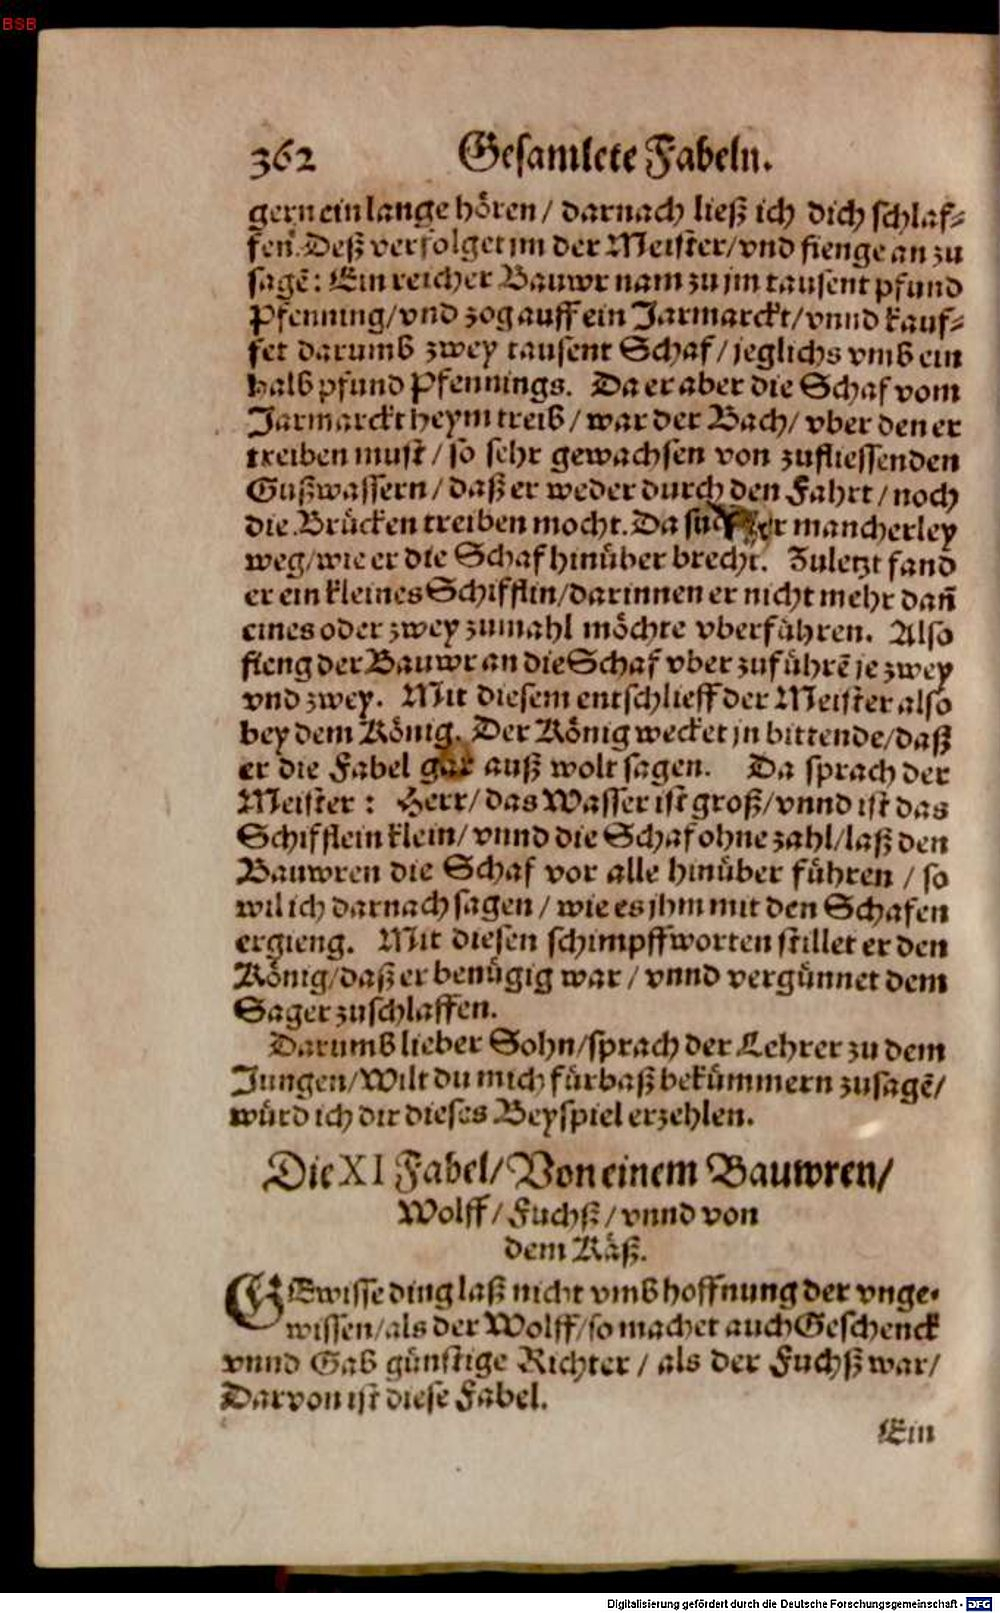 BSB
362 Gesamlete Fabeln.
gern ein lange hören / darnach ließ ich dich schlaf⸗
fen. Deß verfolget jm der Meister / vnd fienge an zu
sagẽ: Ein reicher Bauwr nam zu jm tausent pfund
Pfenning / vnd zog auff ein Jarmarckt / vnnd kauf⸗
fet darumb zwey tausent Schaf / jeglichs vmb ein
halb pfund Pfennings. Da er aber die Schaf vom
Jarmarckt heym treib / war der Bach / vber den er
treiben must / so sehr gewachsen von zufliessenden
Gußwassern / daß er weder durch den Fahrt / noch
die Brücken treiben mocht. Da er mancherley
weg / wie er die Schaf hinüber brecht. Zuletzt fand
er ein kleines Schifflin / darinnen er nicht mehr dañ
eines oder zwey zumahl möchte vberführen. Also
fieng der Bauwr an die Schaf vber zuführẽ je zwey
vnd zwey. Mit diesem entschlieff der Meister also
bey dem König. Der König wecket jn bittende / daß
er die Fabel gar auß wolt sagen. Da sprach der
Meister: Herr / das Wasser ist groß / vnnd ist das
Schifflein klein / vnnd die Schaf ohne zahl / laß den
Bauwren die Schaf vor alle hinüber führen / so
wil ich darnach sagen / wie es jhm mit den Schafen
ergieng. Mit diesen schimpffworten stillet er den
König / daß er benügig war / vnnd vergünnet dem
Sager zuschlaffen.
Darumb lieber Sohn / sprach der Lehrer zu dem
Jungen / Wilt du mich fürbaß bekümmern zusagẽ /
würd ich dir dieses Beyspiel erzehlen.
Die XI Fabel / Von einem Bauwren /
Wolff / Fuchß / vnnd von
dem Käß.
GEwisse ding laß nicht vmb hoffnung der vnge⸗
wissen / als der Wolff / so machet auch Geschenck
vnnd Gab günstige Richter / als der Fuchß war /
Darvon ist diese Fabel.
Ein
Digitalisierung gefördert durch die Deutsche Forschungsgemeinschaft - DFG